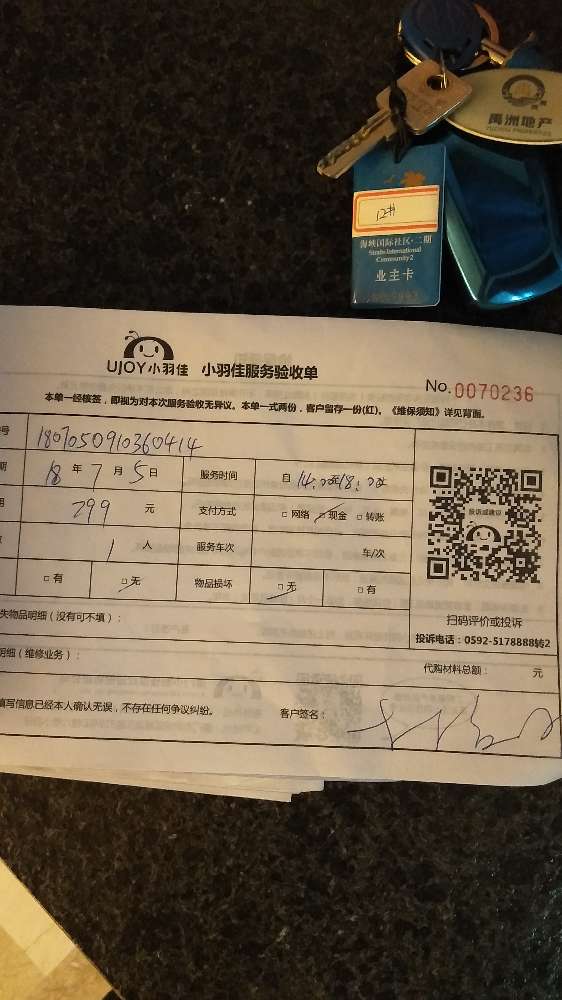 禹洲地产
YUZHOU PROPERTIES
12#
海峡国际社区·二期
Straits International
Community2
业主卡
UJOY小羽佳 小羽佳服务验收单
No.0070236
本单一经核签，即视为对本次服务验收无异议。本单一式两份，客户留存一份(红)。《维保须知》详见背面。
号 1807050910360414
期 18 年 7 月 5 日 服务时间 自 14:00至18:00
用 299 元 支付方式 □ 网络 □ 现金 □ 转账
1 人 服务车次 车/次
□ 有 □ 无 物品损坏 □ 无 □ 有
投诉或建议
扫码评价或投诉
投诉电话：0592-5178888转2
失物品明细（没有可不填）：
明细（维修业务）： 代购材料总额： 元
填写信息已经本人确认无误，不存在任何争议纠纷。 客户签名：